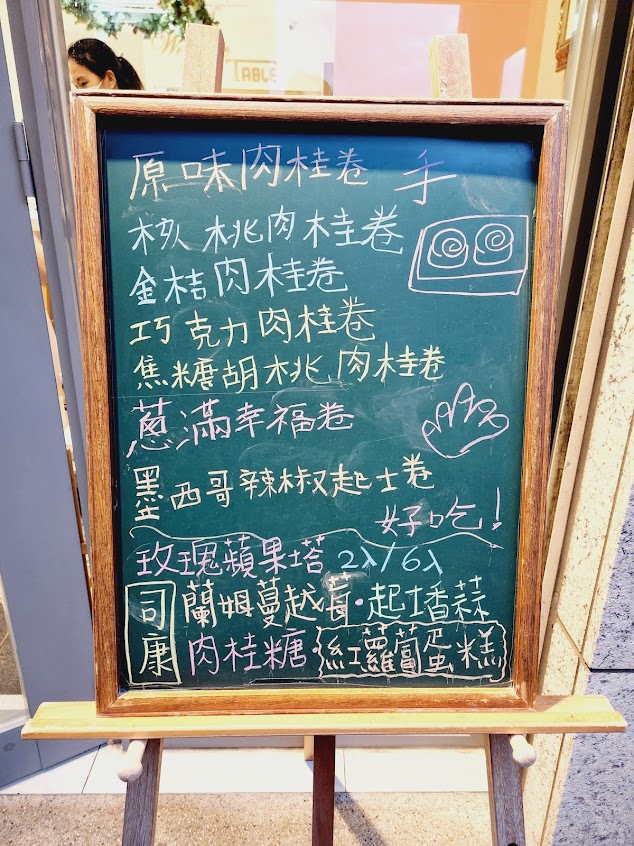 ABLE
原味肉桂卷 手
核桃肉桂卷
金桔肉桂卷
巧克力肉桂卷
焦糖胡桃肉桂卷
蔥滿幸福卷
墨西哥辣椒起士卷
好吃!
玫瑰蘋果塔 2入/6入
司康 蘭姆蔓越莓・起士番蒜
肉桂糖・紅蘿蔔蛋糕